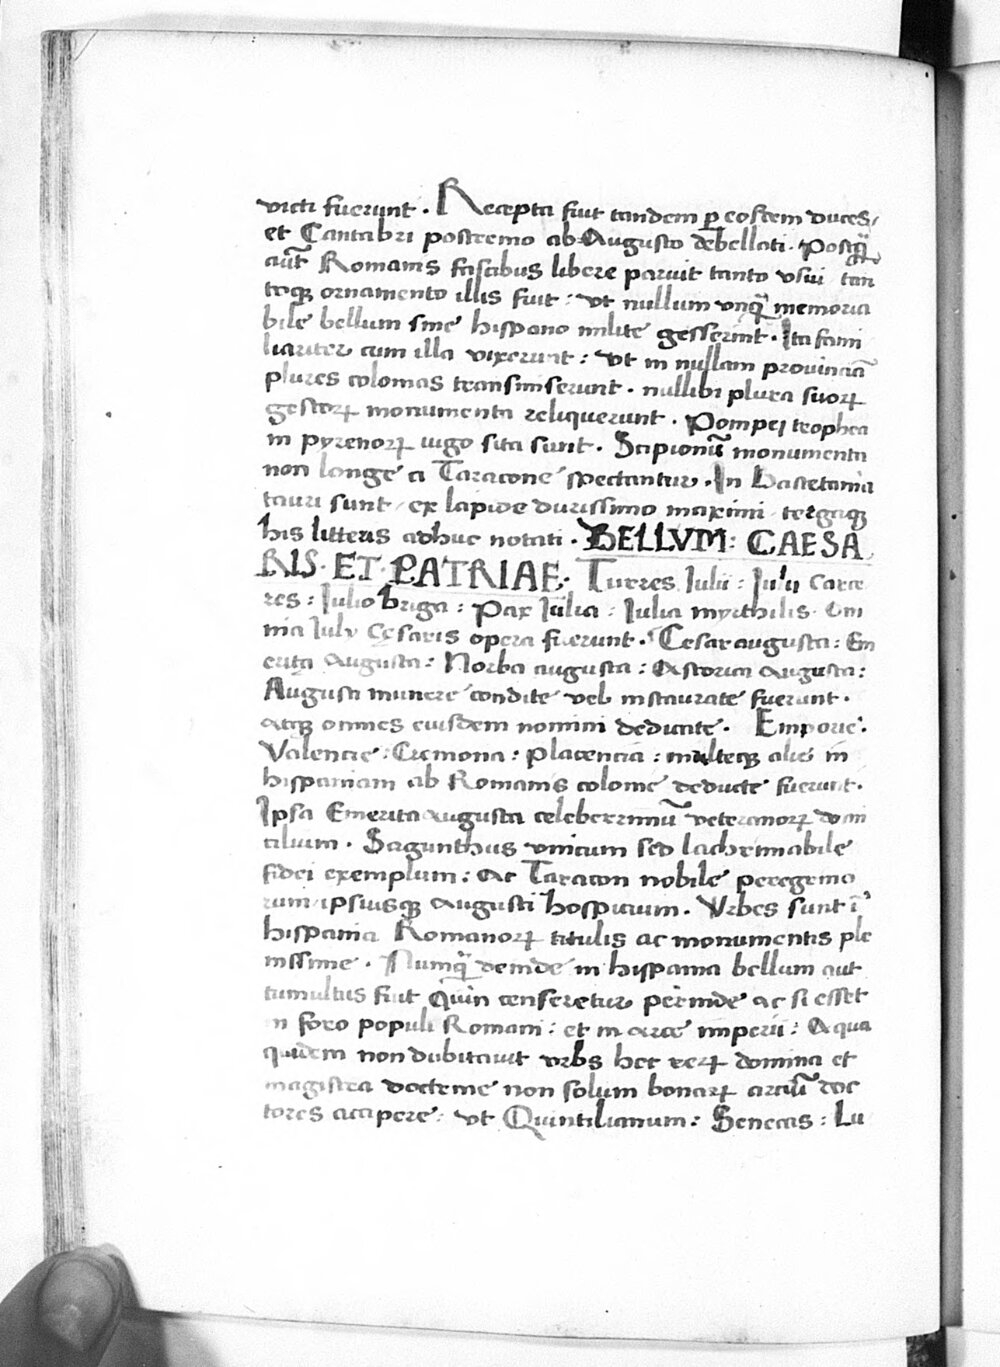 victi fuerunt. Recepta fuit tandem ꝑ eosdem duces,
et Cantabri postremo ab Augusto debellati. Postq̃
aut̃ Romanis fascibus libere paruit tanto usui tan
toq; ornamento illis fuit: ut nullum unq̃ memora
bile bellum sine hispano milite gesserint. Ita fami
liariter cum illa vixerunt: ut in nullam prouinciã
plures colonias transmiserunt. nullibi plura suoꝝ
gestoꝝ monumenta reliquerunt. Pompeij trophea
in pyrenoꝝ iugo sita sunt. Scipionũ monumenta
non longe a Taracone spectantur. In Bastetania
tauri sunt, ex lapide durissimo maximi, tergaq;
his litteris adhuc notati. BELLVM: CAESA
RIS. ET. PATRIAE. Turres Iulii: Iulij carce
res: Iulio briga: Pax Iulia: Iulia myrthilis. Om
nia Iulij Cęsaris opera fuerunt. Cesar augusta: Em
erita Augusta: Norba augusta: Astorica augusta:
Augusti munere condite vel instaurate fuerunt.
atq; omnes eiusdem nomini dedicate. Emporie.
Valencie: Cremona: Placencia: multeq; alie in
hispaniam ab Romanis colonie deducte fuerunt.
Ipsa Emerita augusta celeberrimũ veteranoꝝ domi
cilium. Sagunthus unicum sed lachrimabile
fidei exemplum: ac Taracon nobile peregrino
rum ipsiusq; augusti hospicium. Vrbes sunt ĩ
hispania Romanoꝝ titulis ac monumentis ple
nissime. Numq̃ deinde in hispania bellum aut
tumultus fuit Quin censeretur perinde ac si esset
in foro populi Romani: et in arce imperii: A qua
quidem non dubitauit urbs hec reꝝ domina et
magistra docteme non solum bonaꝝ arciũ doc
tores accipere: ut Quintilianum: Senecas: Lu